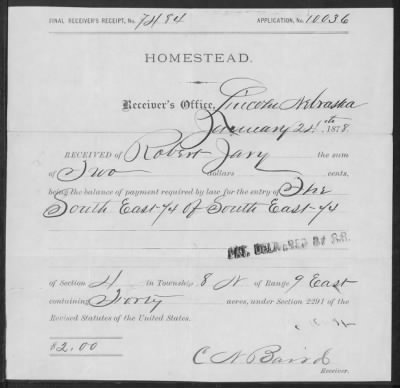 FINAL RECEIVER'S RECEIPT, No. 7484 APPLICATION, No. 10036
HOMESTEAD.
Receiver's Office, Lincoln Nebraska
January 24th 1878.
RECEIVED of Robert Jary the sum
of Two dollars cents,
being the balance of payment required by law for the entry of The
South East-1/4 of South East-1/4
of Section 4 in Township 8 N of Range 9 East
containing Forty acres, under Section 2291 of the
Revised Statutes of the United States.
$2.00
C N Baird
Receiver.